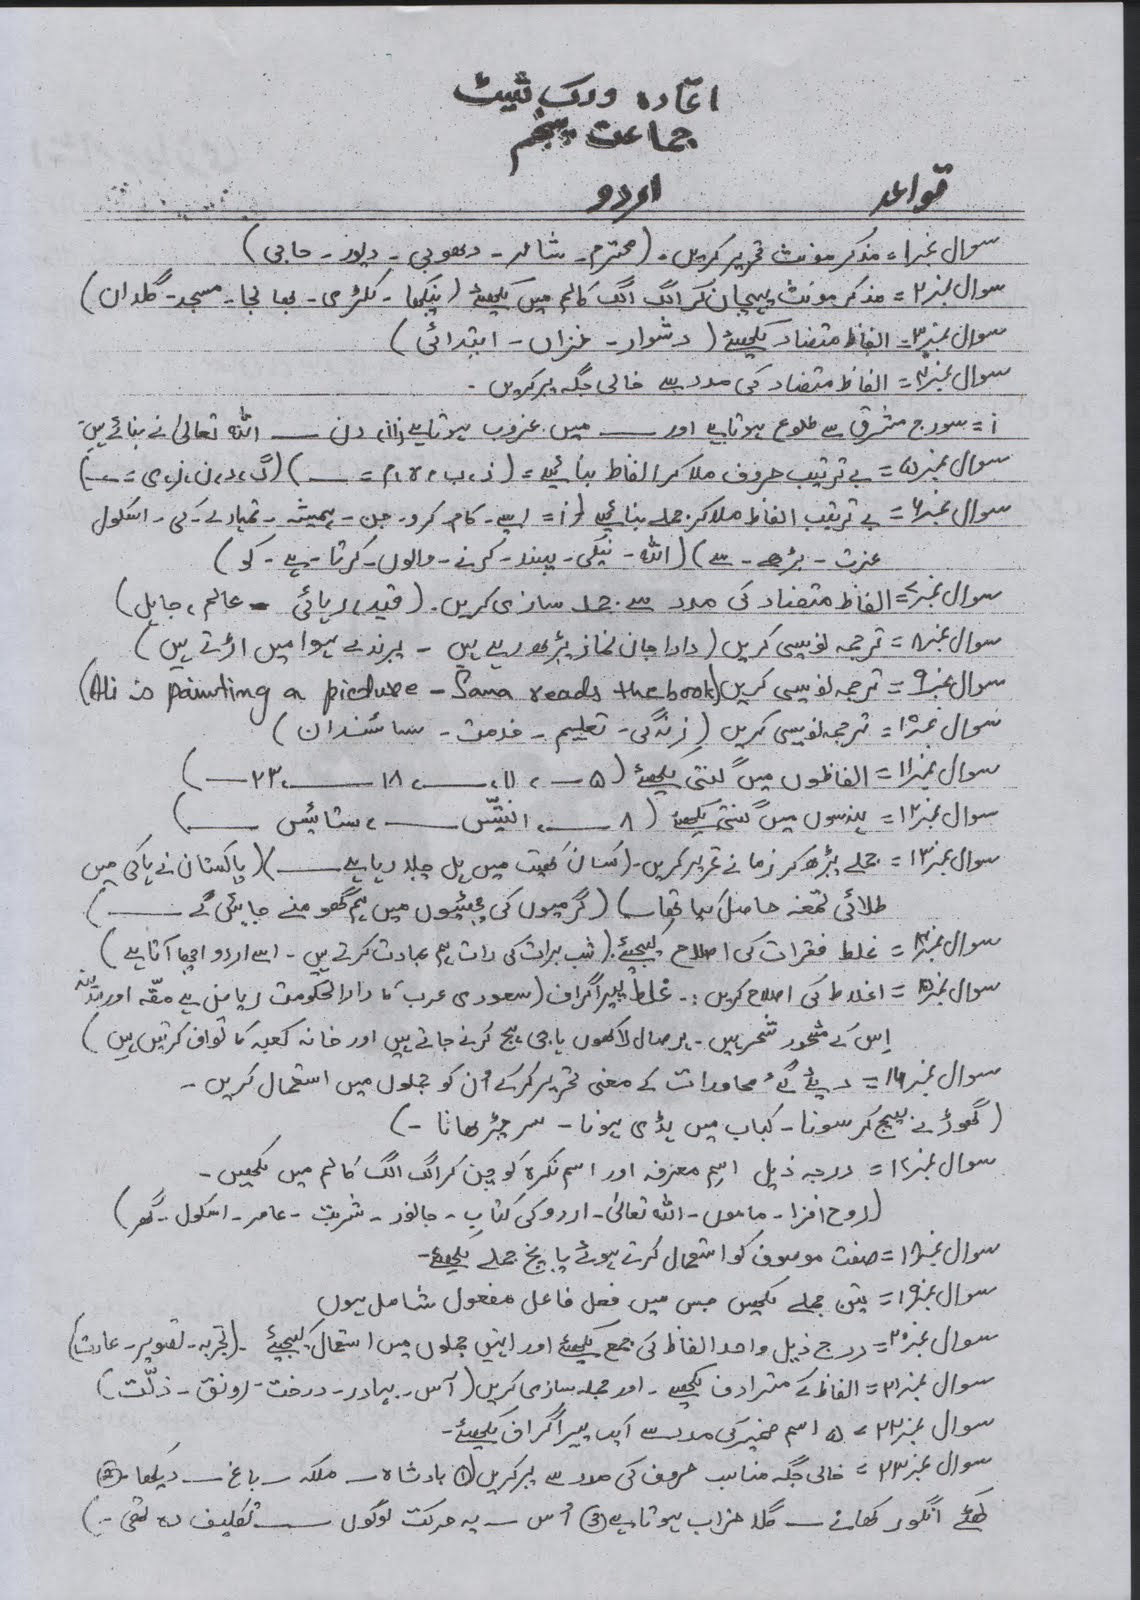 اعادہ ورک شیٹ
جماعت پنجم
قواعد اردو
سوال نمبر۱= مذکر مونث تحریر کریں۔ (محترم۔ شاعر۔ دھوبی۔ دیور۔ حاجی)
سوال نمبر۲= مذکر مونث پہچان کر الگ الگ کالم میں لکھیئے (پنکھا۔ لکڑی۔ بھانجا۔ مسجد۔ گلدان)
سوال نمبر۳= الفاظ متضاد لکھیئے (دشوار۔ خزاں۔ ابتدائی)
سوال نمبر۴= الفاظ متضاد کی مدد سے خالی جگہ پر کریں۔
i= سورج مشرق سے طلوع ہوتا ہے اور ــــ میں غروب ہوتا ہے (ii) دن ــــ اللہ تعالیٰ نے بنائے ہیں۔
سوال نمبر۵= بے ترتیب حروف ملا کر الفاظ بنائیے= (ذ، ب، ہ، م = ــــ) (گ، د، ن، ز، ی = ــــ)
سوال نمبر۶= بے ترتیب الفاظ ملا کر جملے بنائیے (i= ایسے۔ کام۔ کرو۔ جن۔ ہمیشہ۔ تمہارے۔ کی۔ اسکول
عزت۔ بڑھے۔ سے) (اللہ۔ نیکی۔ پسند۔ کرنے۔ والوں۔ کرتا۔ ہے۔ کو)
سوال نمبر۷= الفاظ متضاد کی مدد سے جملہ سازی کریں۔ (قید، رہائی ۔ عالم، جاہل)
سوال نمبر۸= ترجمہ نویسی کریں (دادا جان نماز پڑھ رہے ہیں ۔ پرندے ہوا میں اڑتے ہیں)
سوال نمبر۹= ترجمہ نویسی کریں (Ali is painting a picture – Sana reads the book)
سوال نمبر۱۰= ترجمہ نویسی کریں (زندگی۔ تعلیم۔ خدمت۔ سائنسدان)
سوال نمبر۱۱= الفاظوں میں گنتی لکھیئے (۵ ــــ، ۱۱ ــــ، ۱۸ ــــ، ۲۳ ــــ)
سوال نمبر۱۲= ہندسوں میں گنتی لکھیئے (۸ ــــ، انتیّس ــــ، ستائیس ــــ)
سوال نمبر۱۳= جملے پڑھ کر زمانے تحریر کریں۔ (کسان کھیت میں ہل چلا رہا ہے ــــ) (پاکستان نے ہاکی میں
طلائی تمغہ حاصل کیا تھا ــــ) (گرمیوں کی چھٹیوں میں ہم گھومنے جائیں گے ــــ)
سوال نمبر۱۴= غلط فقرات کی اصلاح کیجیئے۔ (شب برات کی رات ہم عبادت کرتے ہیں۔ اسے اردو اچھا آتا ہے)
سوال نمبر۱۵= اغلاط کی اصلاح کریں:۔ غلط پیراگراف (سعودی عرب کا دارالحکومت ریاض ہے مکّہ اور مدینہ
اس کے مشحور شحر ہیں۔ ہر صال لاکھوں ہاجی ہج کرنے جاتے ہیں اور خانہ کعبہ کا تواف کرتیں ہیں)
سوال نمبر۱۶= دیئے گئے محاورات کے معنی تحریر کرکے اُن کو جملوں میں استعمال کریں۔
(گھوڑے بیچ کر سونا۔ کباب میں ہڈی ہونا۔ سر چڑھانا۔)
سوال نمبر۱۷= درجہ ذیل اسم معرفہ اور اسم نکرہ کو چن کر الگ الگ کالم میں لکھیں۔
(روح افزا۔ ماموں۔ اللہ تعالیٰ۔ اردو کی کتاب۔ جانور۔ شربت۔ عامر۔ اسکول۔ گھر)
سوال نمبر۱۸= صفت موصوف کو استعمال کرتے ہوئے پانچ جملے لکھیئے۔
سوال نمبر۱۹= تین جملے لکھیں جس میں فعل فاعل مفعول شامل ہوں
سوال نمبر۲۰= درج ذیل واحد الفاظ کی جمع لکھیئے اور انہیں جملوں میں استعمال کیجیئے۔ (تجربہ۔ تصویر۔ عادت)
سوال نمبر۲۱= الفاظ کے مترادف لکھیے۔ اور جملہ سازی کریں (آس۔ بہادر۔ درخت۔ رونق۔ ذلّت)
سوال نمبر۲۲= ۵ اسم ضمیر کی مدد سے ایک پیراگراف لکھیئے۔
سوال نمبر۲۳= خالی جگہ مناسب حروف کی مدد سے پر کریں (۱) بادشاہ ــــ ملکہ ــــ باغ ــــ دیکھا۔ (۲)
کھٹے انگور کھانے ــــ گلا خراب ہوتا ہے (۳) اُس ــــ یہ حرکت لوگوں ــــ تکلیف دہ تھی۔)